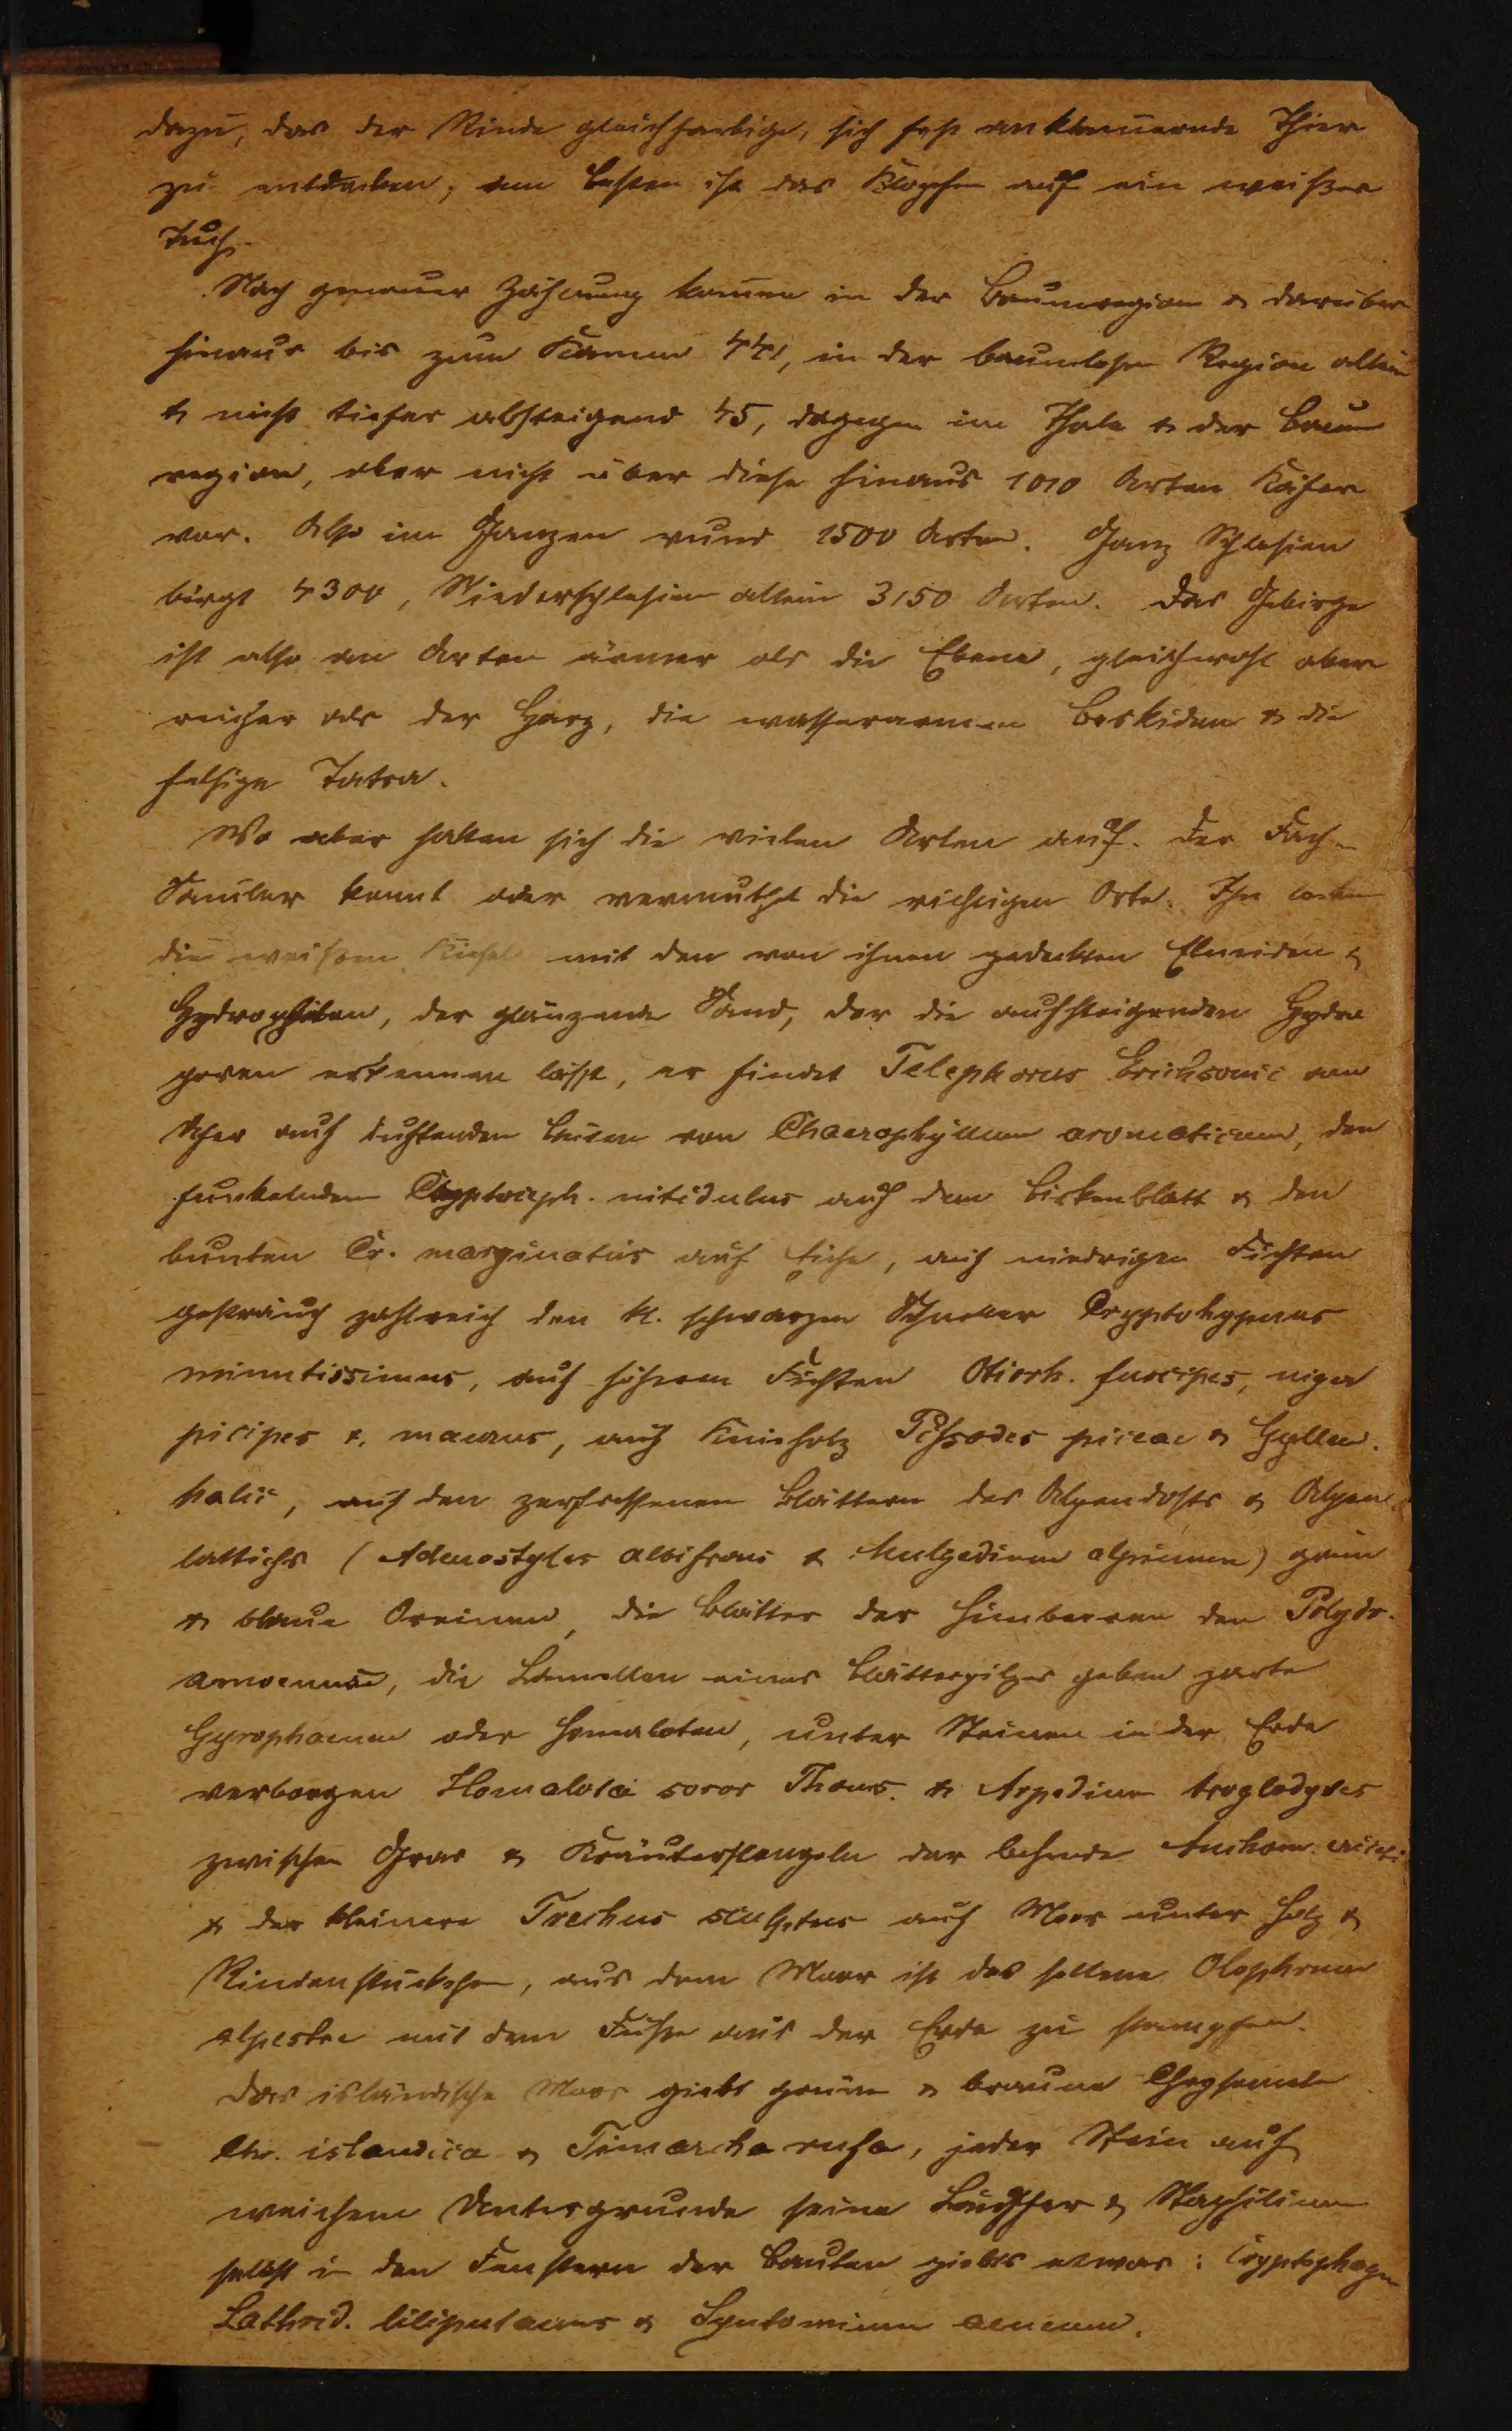 dazu, das der Rinde gleichfarbige, sich fest anklammernde Thier
zu entdecken, am besten ist das Klopfen auf ein weißes
Tuch.
Nach genauer Zählung kamen in der Baumregion & darüber
hinaus bis zum Kamm 441, in der baumlosen Region allein
& nicht tiefer absteigend 45, dagegen im Thale & der Baum
region, aber nicht über diese hinaus 1010 Arten Käfer
vor. Also im Ganzen rund 1500 Arten. Ganz Schlesien
birgt 4300, Niederschlesien allein 3150 Arten. Das Gebirge
ist also an Arten ärmer als die Ebene, gleichwohl aber
reicher als der Harz, die wasserarmen Beskiden & die
felsige Tatra.
Wo aber halten sich die vielen Arten auf. Der Fach-
Samler kennt oder vermuthet die richtigen Orte. Ihn locken
die weißen Kiesel mit den von ihnen gedeckten Elmiden &
Hydrophilen, der glänzende Sand, der die aufsteigenden Hydro
poren erkennen läßt, er findet Telephorus Erichsonii an
den duftenden Blüten von Chaerophyllum aromaticum, den
funkelnden Cryptoceph. nitidulus auf dem Birkenblatt & den
bunten Cr. marginatus auf Eiche, auf niedrigen Fichten
gesträuch zahlreich den kl. schwarzen Schneller Cryptohypnus
minutissimus, auf höheren Fichten Otiorh. fuscipes, niger
picipes & maurus, auf Knieholz Pissodes piceae & Gyllen-
halii, auf den zerfressenen Blättern des Alpendosts & Alpen-
lattichs (Adenostyles albifrons & Mulgedium alpinum) grüne
& blaue Oreinen, die Blätter der Himbeeren den Polydr.
amoenus, die Lamellen eines Blätterpilzes geben zarte
Gyrophaenen oder Homaloten, unter Steinen in der Erde
verborgen Homalota soror Thoms. & Arpedium troglodytes
zwischen Gras & Kräuterstengeln der behende Anchom.
& der kleinere Trechus sculptus auf Moor unter Holz &
Rindenstückchen, aus dem Moor ist das seltene Olophrum
alpestre mit dem Fuße aus der Erde zu stampfen.
Das isländische Moos giebt grüne & braune Chrysomelen
Chr. islandica & Timarcha rufa, jeder Stein auf
weichem Untergrunde seine Läufer & Staphilinen
selbst in den Fenstern der Bauden giebts etwas: Cryptophagen
Lathrid. liliputanus & Syntomium aeneum.